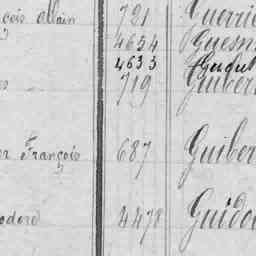 çois Allain 721 Guerrie
4654 Guesn
4633
719 Guiber
François 687 Guiber
odore 4478 Guido